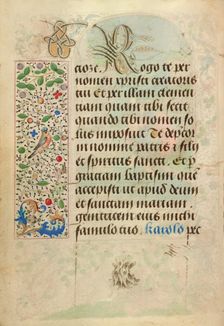 ctore. Rogo te per
nomen xpriste creatoris
tui Et per illam clemen
tiam quam tibi fecit
quando tibi nomen so
lus imposuit Te depcor
in nomine patris et filij
et spiritus sancti. Et p
gratiam baptismi que
accepisti ut apud deum
et sanctam mariam.
genitricem eius michi
famulo tuo. karolo pec